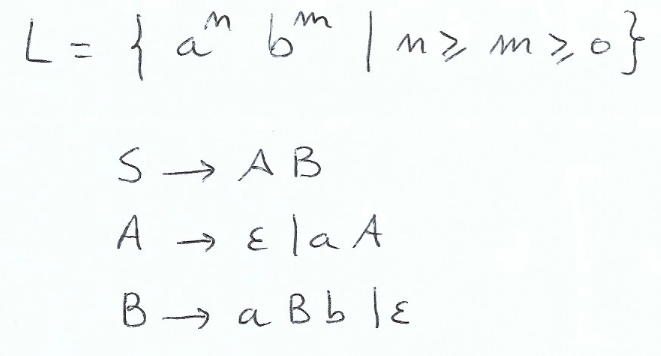 L = { aⁿ bᵐ | n ⩾ m ⩾ 0}
S → A B
A → ε | a A
B → a B b | ε